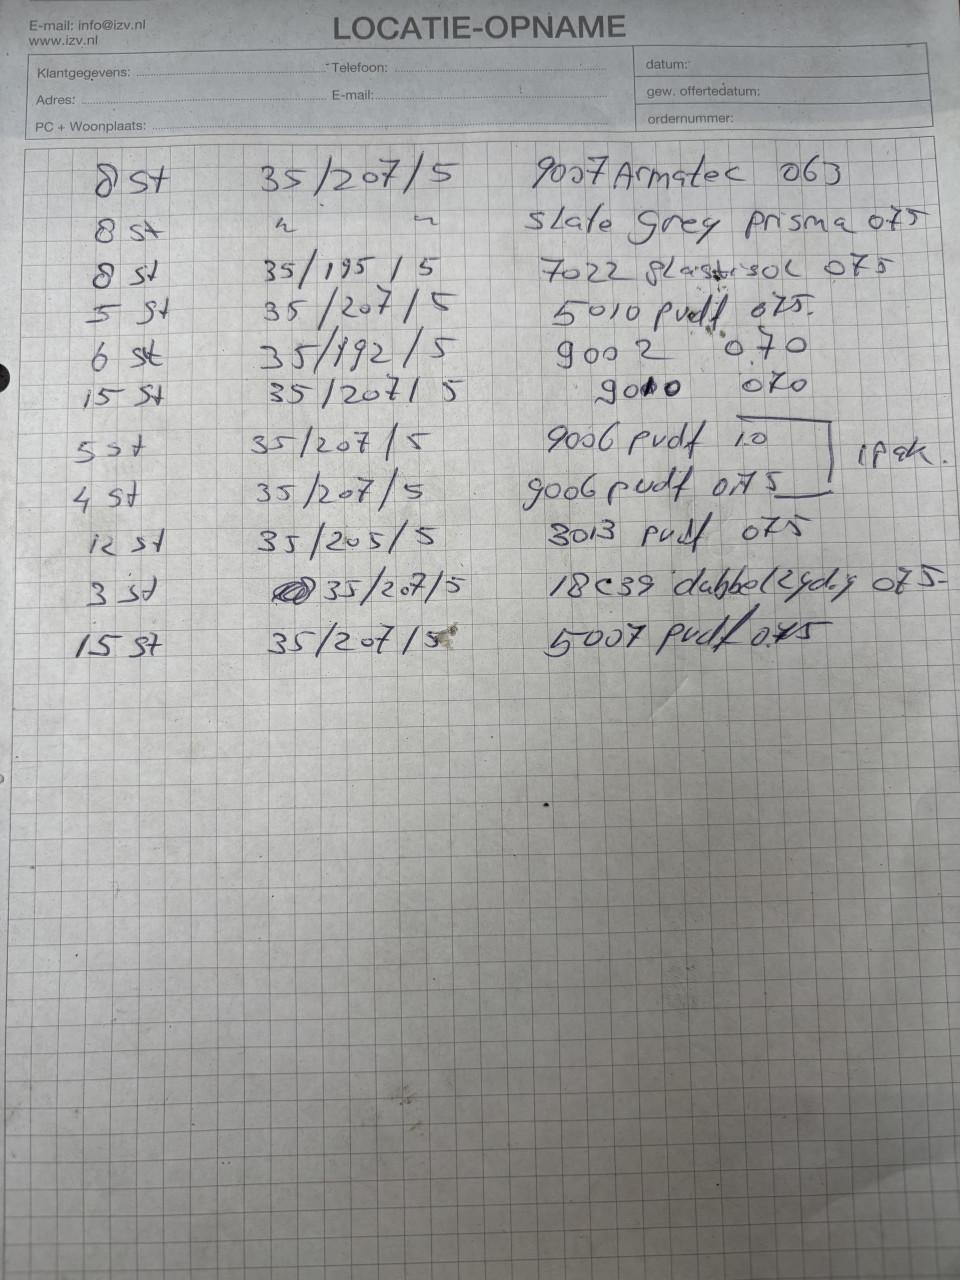 E-mail: info@izv.nl
www.izv.nl
LOCATIE-OPNAME
Klantgegevens: Telefoon: datum:
Adres: E-mail: gew. offertedatum:
PC + Woonplaats: ordernummer:
8 st 35/207/5 9007 Armatec 063
8 st " " slate grey prisma 075
8 st 35/195/5 7022 plastisol 075
5 st 35/207/5 5010 pvdf 075.
6 st 35/192/5 9002 0.70
15 st 35/207/5 9010 070
5 st 35/207/5 9006 pvdf 1.0
1 pak.
4 st 35/207/5 9006 pvdf 0.75
12 st 35/205/5 3013 pvdf 075
3 st 35/207/5 18C39 dubbelzydig 075
15 st 35/207/5 5007 pvdf 0.75